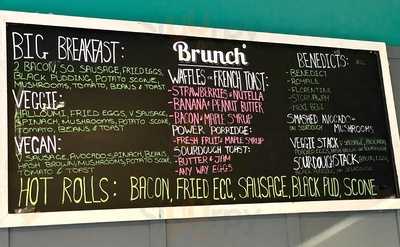 BIG BREAKFAST:
2 BACON, SQ. SAUSAGE, FRIED EGGS,
BLACK PUDDING, POTATO SCONE,
MUSHROOMS, TOMATO, BEANS & TOAST
VEGGIE:
HALLOUMI, FRIED EGGS, V. SAUSAGE,
SPINACH, MUSHROOMS, POTATO SCONE,
TOMATO, BEANS & TOAST
VEGAN:
V. SAUSAGE, AVOCADO, SPINACH, BEANS,
HASH BROWN, MUSHROOMS, POTATO SCONE,
TOMATO & TOAST
Brunch
WAFFLES OR FRENCH TOAST:
-STRAWBERRIES & NUTELLA
-BANANA & PEANUT BUTTER
-BACON & MAPLE SYRUP
POWER PORRIDGE:
-FRESH FRUIT & MAPLE SYRUP
SOURDOUGH TOAST:
-BUTTER & JAM
-ANY WAY EGGS
BENEDICTS:
-BENEDICT
-ROYALE
-FLORENTINE
-STORNAWAY
SMASHED AVOCADO
ON SOURDOUGH MUSHROOMS
VEGGIE STACK:
SOURDOUGH STACK
HOT ROLLS: BACON, FRIED EGG, SAUSAGE, BLACK PUD, SCONE